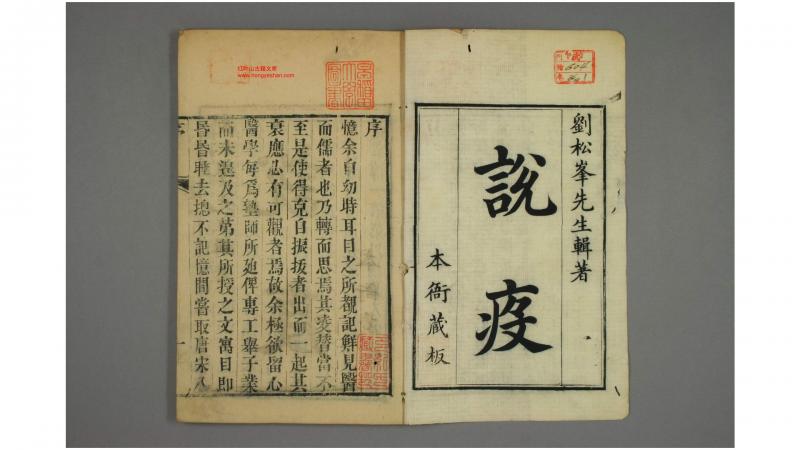 劉松峯先生輯著
說疫
本衙蔵板
序
憶余自幼時耳目之所覩記鮮見醫
而儒者也乃轉而思焉其凌替當不
至是使得克自振抜者出而一起其
衰應必有可觀者焉故余極欲留心
醫學每爲塾師所廹俾專工舉子業
而未遑及之第其所授之文寓目即
昏昏睡去揔不記憶間嘗取唐宋八
序
一
红叶山古籍文库
www.hongyeshan.com
604